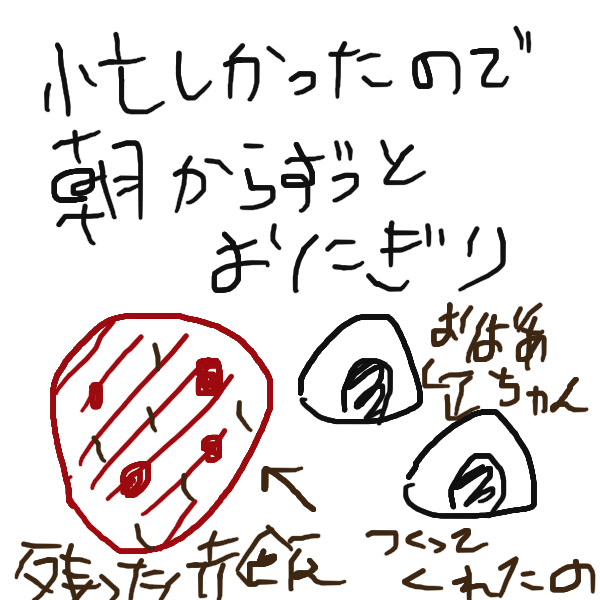 忙しかったので
朝からずっと
おにぎり
おばあ
ちゃん
つくって
くれたの
残った赤飯